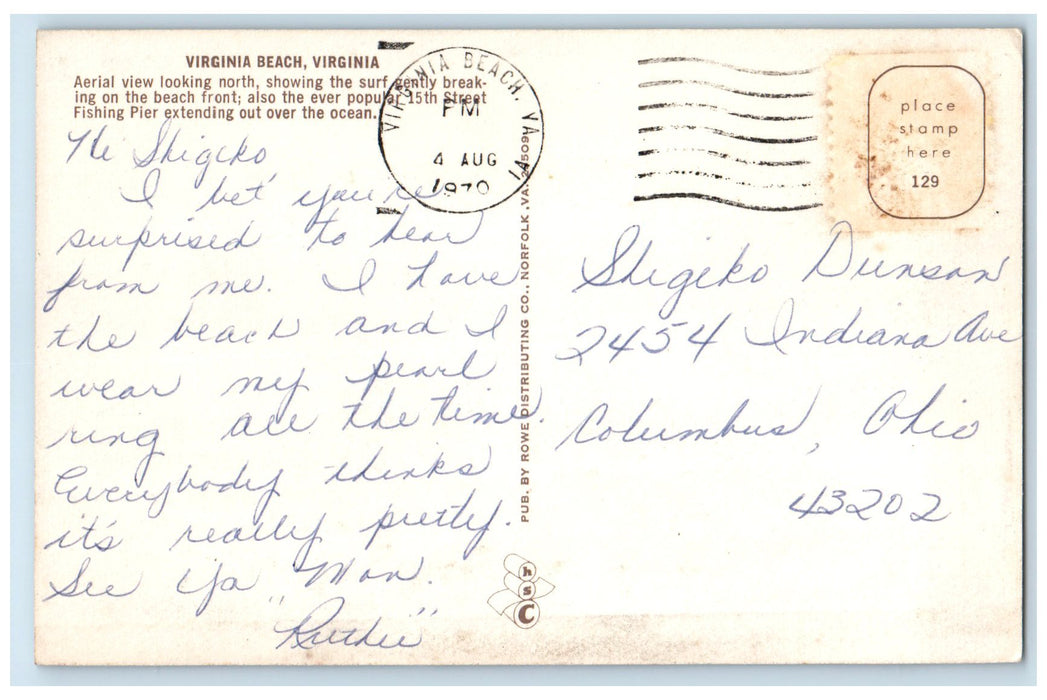 VIRGINIA BEACH, VIRGINIA
Aerial view looking north, showing the surf gently break-
ing on the beach front; also the ever popular 15th Street
Fishing Pier extending out over the ocean.
VIRGINIA BEACH, VA
PM
4 AUG
1970
place
stamp
here
129
Hi Shigeko
I bet you're
surprised to hear
from me. I love
the beach and I
wear my pearl
ring all the time.
Everybody thinks
it's really pretty.
See Ya Mon.
"Ruthie"
PUB. BY ROWE DISTRIBUTING CO., NORFOLK, VA. 23509
Shigeko Dunson
2454 Indiana Ave
Columbus, Ohio
43202
h
s
C